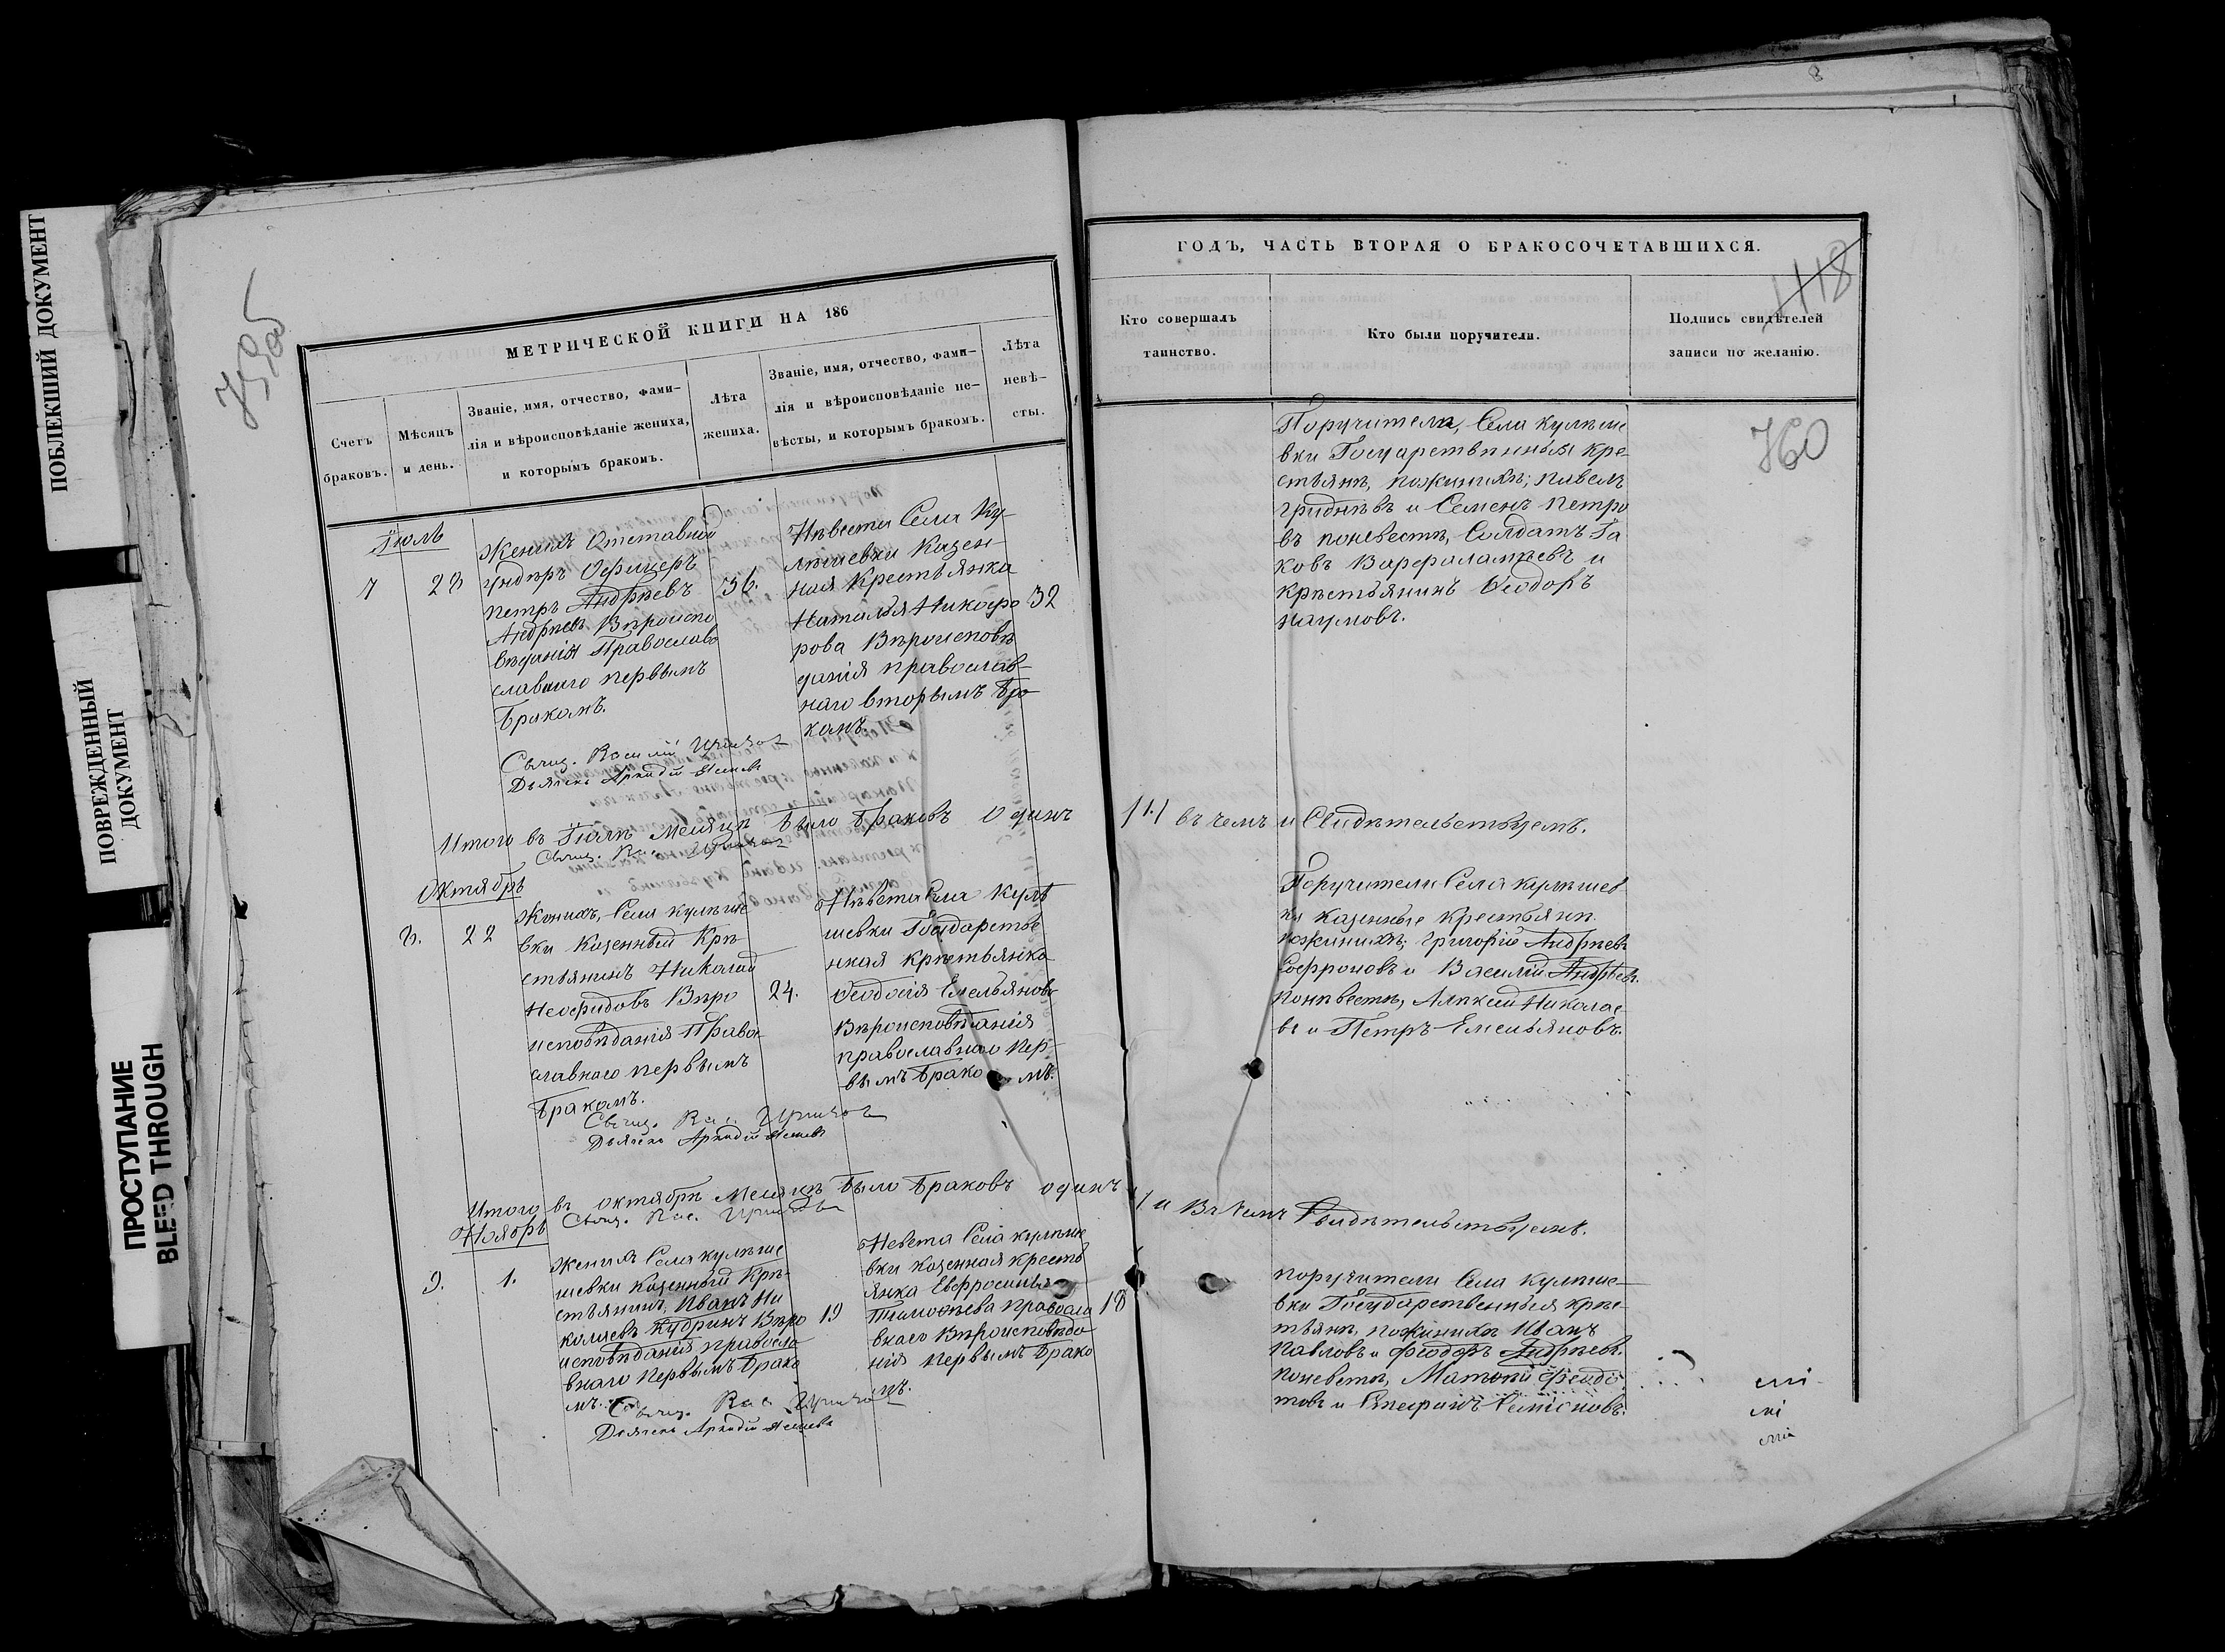 ПОБЛЕКШИЙ ДОКУМЕНТ
ПОВРЕЖДЕННЫЙ
ДОКУМЕНТ
ПРОСТУПАНИЕ
BLEED THROUGH
МЕТРИЧЕСКОЙ КНИГИ НА 186
Счетъ
браковъ.
Мѣсяцъ
и день.
Званіе, имя, отчество, фами-
лія и вѣроисповѣданіе жениха,
и которымъ бракомъ.
Лѣта
жениха.
Званіе, имя, отчество, фами-
лія и вѣроисповѣданіе не-
вѣсты, и которымъ бракомъ.
Лѣта
невѣ-
сты.
Іюль
7
28
Женихъ Отставной
ундпръ Офицеръ
Петръ Андрѣевъ
Андрѣевъ Вѣроиспо
вѣданія Правосла
славнаго первымъ
бракомъ.
36.
Нѣвеста Села Ку-
лѣшевки Казен-
ная Крестьянка
Наталья Никофо
рова Вѣроисповѣ
данія православ-
наго вторымъ бра
комъ.
32
Свящ. Василій
Дьячекъ Аркадій
Итого въ Іюлѣ Месяцѣ было браковъ Одинъ
Свящ. Вас.
Октябрь
8.
22
Женихъ, Села Кулѣше
вки Казенный Крѣ
стьянинъ Николай
Неофидовъ Вѣро
исповѣданія Право
славнаго первымъ
бракомъ.
24.
Нѣвета Села Кулѣ
шевки Государстве
нная крѣстьянка
Феодосія Емельянова
Вѣроисповѣданія
православнаго Пер-
вымъ брако мъ.
Свящ. Вас.
Дьячекъ Аркадій
Итого въ октябрѣ Месяцѣ было браковъ одинъ
Свящ. Вас.
Ноябрь
9.
1.
Женихъ Села кулѣше
шевки Казенный Крѣ-
стьянинъ, Иванъ Ни
колаевъ Кудринъ Вѣро
исповѣданія правосла
внаго Первымъ брако
мъ.
19
Невета Села кулѣше
вки казенная кресть
янка Евфросинья
Тимофѣева Правосла
внаго Вѣроисповѣда
нія Первымъ брако
мъ.
18
Свящ. Вас.
Дьячекъ Аркадій
ГОДЪ, ЧАСТЬ ВТОРАЯ О БРАКОСОЧЕТАВШИХСЯ.
418
Кто совершалъ
таинство.
Кто были поручители.
Подпись свидѣтелей
записи по желанію.
760
Поручители, Села кулѣше
вки Госуарствнныя кре-
стьянѣ, пожинихѣ; павелъ
гриднѣвъ и Семенъ Петро
въ поневестѣ, Солдатъ Іа
ковъ Варфаламѣевъ и
крѣстьянинъ Феодоръ
Наумовъ.
/1./ въ чемъ и Свидѣтельствуемъ.
Поручители Села кулѣшев
ки казенные крестьянѣ
пожинихѣ; Григорій Андрѣевъ
Софроновъ и Василій Андрѣевъ.
Понѣвестѣ, Алѣксей Николае
въ и Петръ Емельяновъ.
/1 и Въ чемъ Свидѣтельствуемъ.
Поручители Села кулѣше-
вки Государственныя крѣс-
тьянѣ, пожинихѣ Иванъ
Павловъ и Феодоръ Андрѣевъ.
Поневетѣ, Матвѣй Федо
товъ и Стефанъ Семіоновъ.